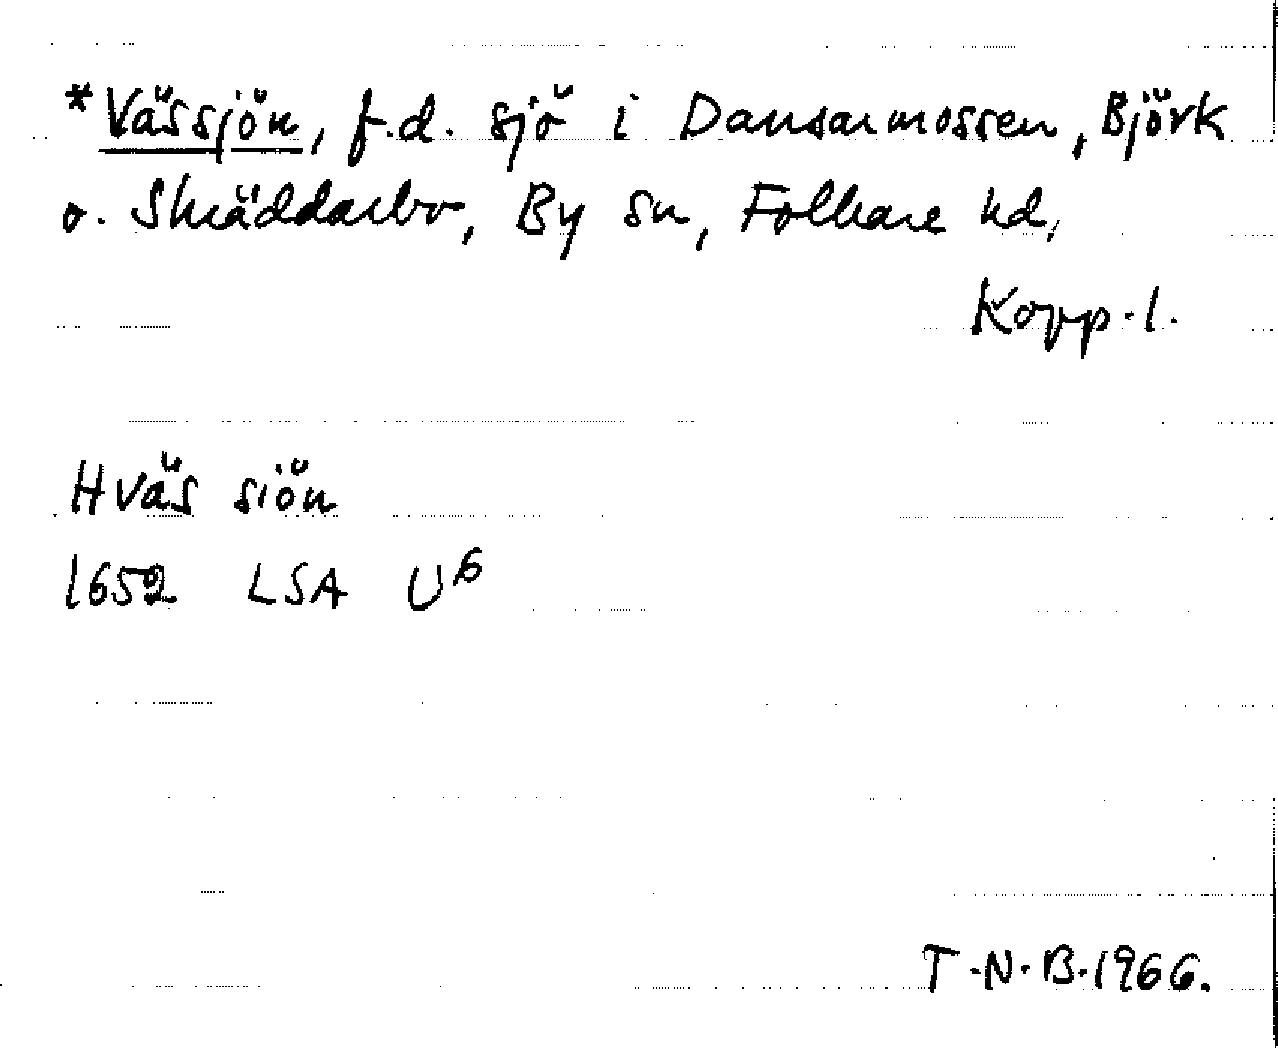 *Vässjön, f.d. sjö i Dansarmossen, Björk
o. Skräddarbo, By sn, Folkare hd,
Kopp.l.
Hväs siön
1652 LSA U6
T.N.B. 1966.